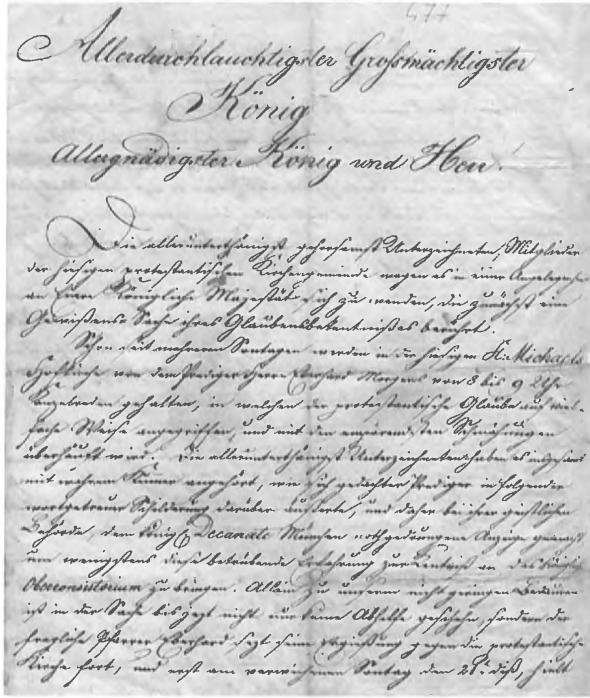 477
Allerdurchlauchtigster Grosmächtigster
König
Allergnädigster König und Herr!
Die allerunterthänigst gehorsamst Unterzeichneten, Mitglieder
der hiesigen protestantischen Kirchengemeinde wagen es in einer Angelegenheit
an Euere Königliche Majestät sich zu wenden, die zunächst eine
Gewißens-Sache ihres Glaubensbekentnißes berührt.
Schon seit mehreren Sontagen werden in der hiesigen St. Michaels
Hofkirche von dem Prediger Herrn Eberhard Morgens von 8 bis 9 Uhr
Kanzelreden gehalten, in welchen der protestantische Glaube auf viel-
fache Weise angegriffen, und mit den empörendsten Schmähungen
überhäuft wird. Die allerunterthänigst Unterzeichneten haben es insgesamt
mit wahrem Kummer angehört, wie sich gedachter Prediger in folgender
wortgetreuer Schilderung darüber äußerte, und daher bei ihrer geistlichen
Behörde, dem Königl. Decanate München nothgedrungene Anzeige gemacht
um wenigstens diese betrübende Erfahrung zur Kentniß an das Königliche
Oberconsistorium zu bringen. Allein zu unserm nicht geringen Bedauern
ist in der Sache bis jezt nicht nur keine Abhülfe geschehen, sondern der
fragliche Pfarrer Eberhard sezt seine Ergießung gegen die protestantische
Kirche fort, und erst am verwichenen Sontag den 28t. dieß, hielt